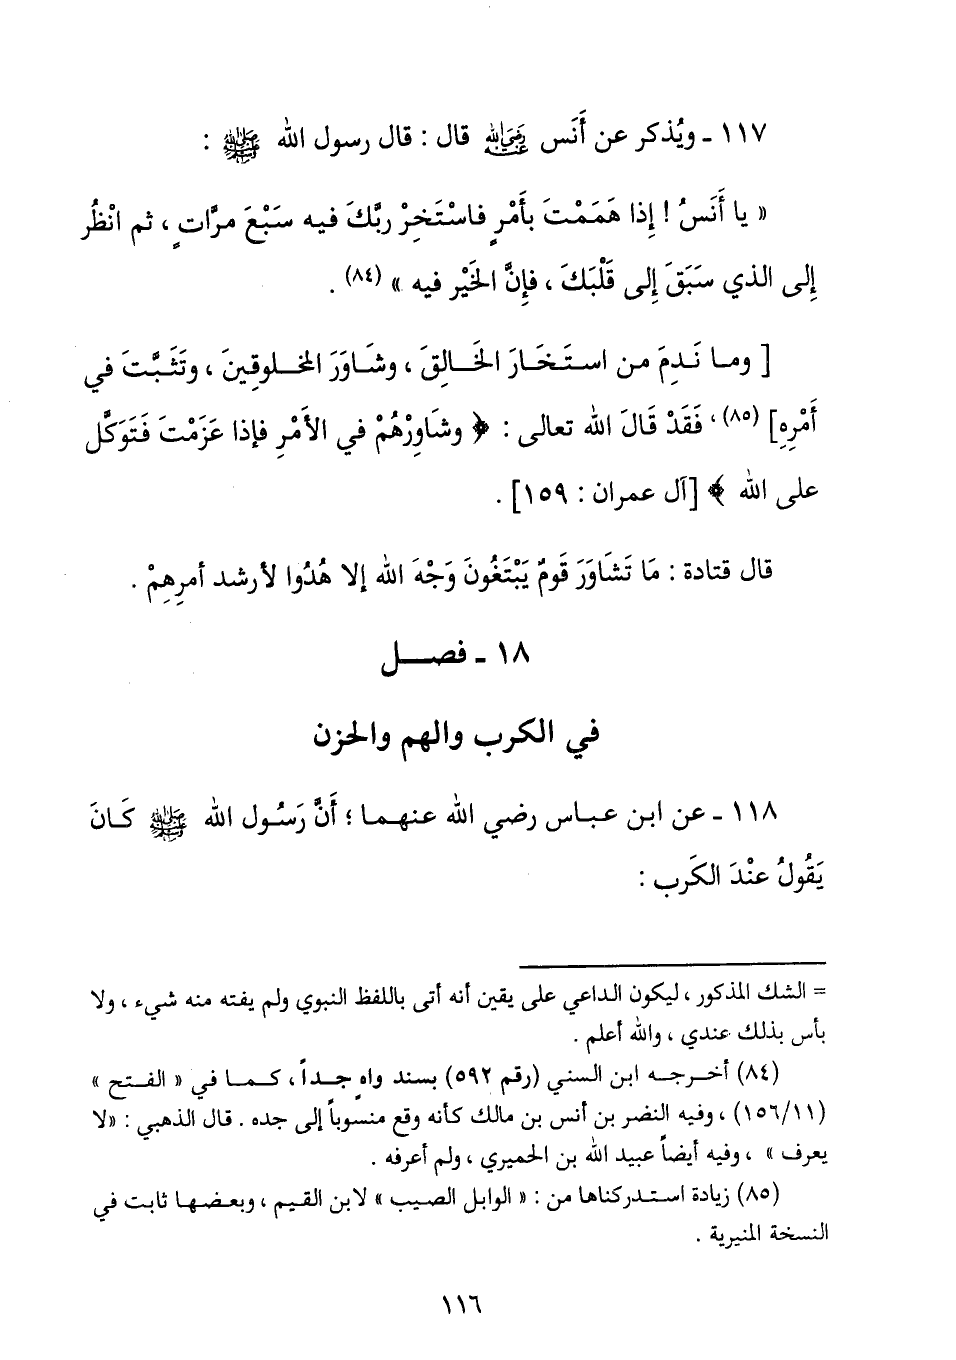 ١١٧ ـ ويُذكر عن أَنَس رضي الله عنه قال : قال رسول الله ﷺ :
« يا أَنَسُ ! إِذا هَمَمْتَ بأَمْرٍ فاسْتَخِرْ ربَّكَ فيه سَبْعَ مرَّاتٍ ، ثم انْظُر
إِلى الذي سَبَقَ إِلى قَلْبَكَ ، فإِنَّ الخَيْر فيه » (٨٤) .
[ وما نَدِمَ من استَخَارَ الخَالِقَ ، وشَاوَرَ المخلوقِينَ ، وتَثَبَّتَ في
أَمْرِهِ] (٨٥) ، فَقَدْ قَالَ الله تعالى : ﴿ وشَاوِرْهُمْ في الأَمْرِ فإذا عَزَمْتَ فَتَوَكَّل
على الله ﴾ [آل عمران : ١٥٩] .
قال قتادة : مَا تَشَاوَرَ قَومٌ يَبْتَغُونَ وَجْهَ الله إلا هُدُوا لأرشد أمرِهِمْ .
١٨ ـ فصل
في الكرب والهم والحزن
١١٨ ـ عن ابن عباس رضي الله عنهما ؛ أَنَّ رَسُول الله ﷺ كَانَ
يَقُولُ عنْدَ الكَرب :
= الشك المذكور ، ليكون الداعي على يقين أنه أتى باللفظ النبوي ولم يفته منه شيء ، ولا
بأس بذلك عندي ، والله أعلم .
(٨٤) أخرجه ابن السني (رقم ٥٩٢) بسند واهٍ جداً ، كما في « الفتح »
(١٥٦/١١) ، وفيه النضر بن أنس بن مالك كأنه وقع منسوباً إلى جده . قال الذهبي : «لا
يعرف » ، وفيه أيضاً عبيد الله بن الحميري ، ولم أعرفه .
(٨٥) زيادة استدركناها من : « الوابل الصيب » لابن القيم ، وبعضها ثابت في
النسخة المنيرية .
١١٦